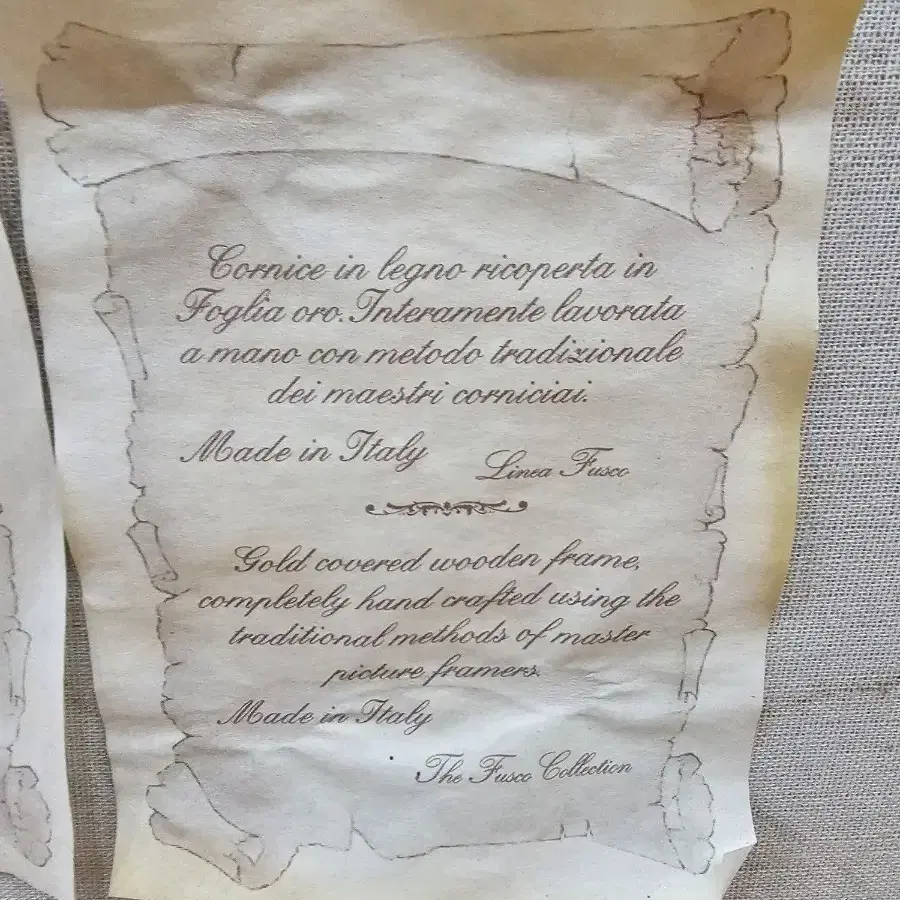 Cornice in legno ricoperta in
Foglia oro. Interamente lavorata
a mano con metodo tradizionale
dei maestri corniciai.
Made in Italy
Linea Fusco
Gold covered wooden frame,
completely hand crafted using the
traditional methods of master
picture framers.
Made in Italy
The Fusco Collection